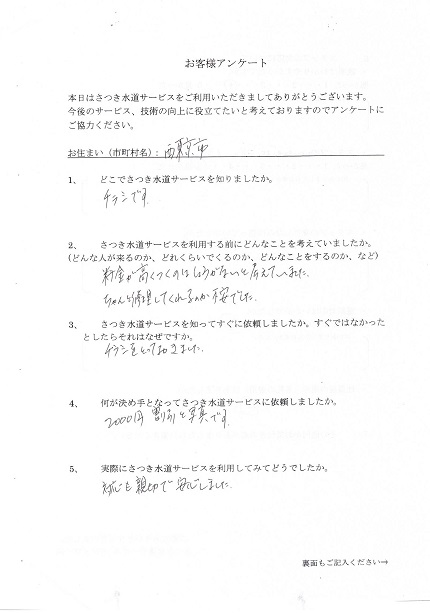 お客様アンケート
本日はさつき水道サービスをご利用いただきましてありがとうございます。
今後のサービス、技術の向上に役立てたいと考えておりますのでアンケートに
ご協力ください。
お住まい（市町村名）：西東京市
1、 どこでさつき水道サービスを知りましたか。
チラシです
2、 さつき水道サービスを利用する前にどんなことを考えていましたか。
（どんな人が来るのか、どれくらいでくるのか、どんなことをするのか、など）
料金が高くつくのはしょうがないと考えていました。
ちゃんと修理してくれるのか不安でした。
3、 さつき水道サービスを知ってすぐに依頼しましたか。すぐではなかった
としたらそれはなぜですか。
チラシをとっておきました。
4、 何が決め手となってさつき水道サービスに依頼しましたか。
2000円割引と写真です。
5、 実際にさつき水道サービスを利用してみてどうでしたか。
対応も親切で安心しました。
裏面もご記入ください→